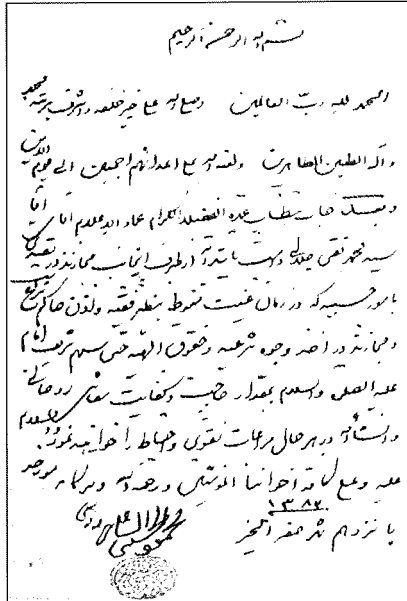 بسم الله الرحمن الرحیم
الحمد لله رب العالمین وصلی الله علی خیر خلقه واشرف بریته محمد
وآله الطیبین الطاهرین ولعنة الله علی اعدائهم اجمعین الی یوم الدین
وبعد جناب مستطاب عمدة الفضلاء الکرام عماد الاعلام آقای آقا
سید محمد تقی دامت تأییداته از طرف اینجانب مجازند در تصدی
بامور حسبیه که در زمان غیبت منوط بنظر فقیه واذن حاکم شرع
ومجازند در اخذ وجوه شرعیه وحقوق الهیه حتی سهم شریف امام
علیه الصلاة والسلام بمقدار حاجت وکفایت
وانشاءالله در هر حال مراعات تقوی واحتیاط را خواهند نمود والسلام
علیه وعلی کافة اخواننا المؤمنین ورحمة الله وبرکاته
پانزدهم شهر صفر الخیر ۱۳۸۷